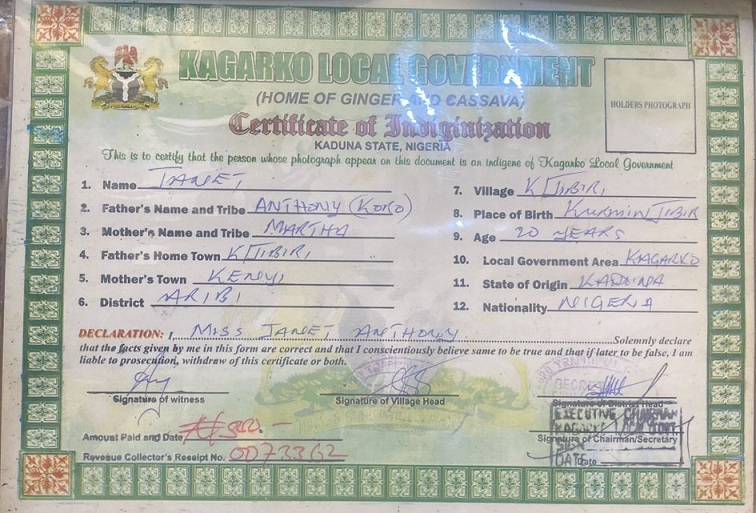 KAGARKO LOCAL GOVERNMENT
(HOME OF GINGER AND CASSAVA)
HOLDERS PHOTOGRAPH
Certificate of Indiginization
KADUNA STATE, NIGERIA
This is to certify that the person whose photograph appear on this document is an indigene of Kagarko Local Government
1. Name JANET
2. Father's Name and Tribe ANTHONY (KORO)
3. Mother's Name and Tribe MARTHA
4. Father's Home Town K/JIBIRI
5. Mother's Town KENYI
6. District ARIBI
7. Village K/JIBIRI
8. Place of Birth KURMIN JIBIR
9. Age 20 YEARS
10. Local Government Area KAGARKO
11. State of Origin KADUNA
12. Nationality NIGERIA
DECLARATION: I, MISS JANET ANTHONY Solemnly declare
that the facts given by me in this form are correct and that I conscientiously believe same to be true and that if later to be false, I am
liable to prosecution, withdrawal of this certificate or both.
Signature of witness
Signature of Village Head
Signature of District Head
EXECUTIVE CHAIRMAN
KAGARKO LOCAL GOVT.
Signature of Chairman/Secretary
SIGN
DATE
Date
Amount Paid and Date ₦500.-
Revenue Collector's Receipt No. 0073362